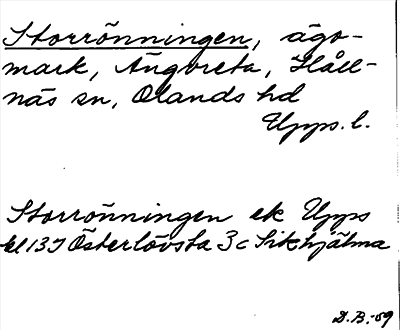 Storrönningen, ägo-
mark, Ängvreta, Håll-
näs sn, Olands hd
Upps. l.
Storrönningen ek Upps
bl 13 I Österlövsta 3 c Sikhjälma
D.B.-69